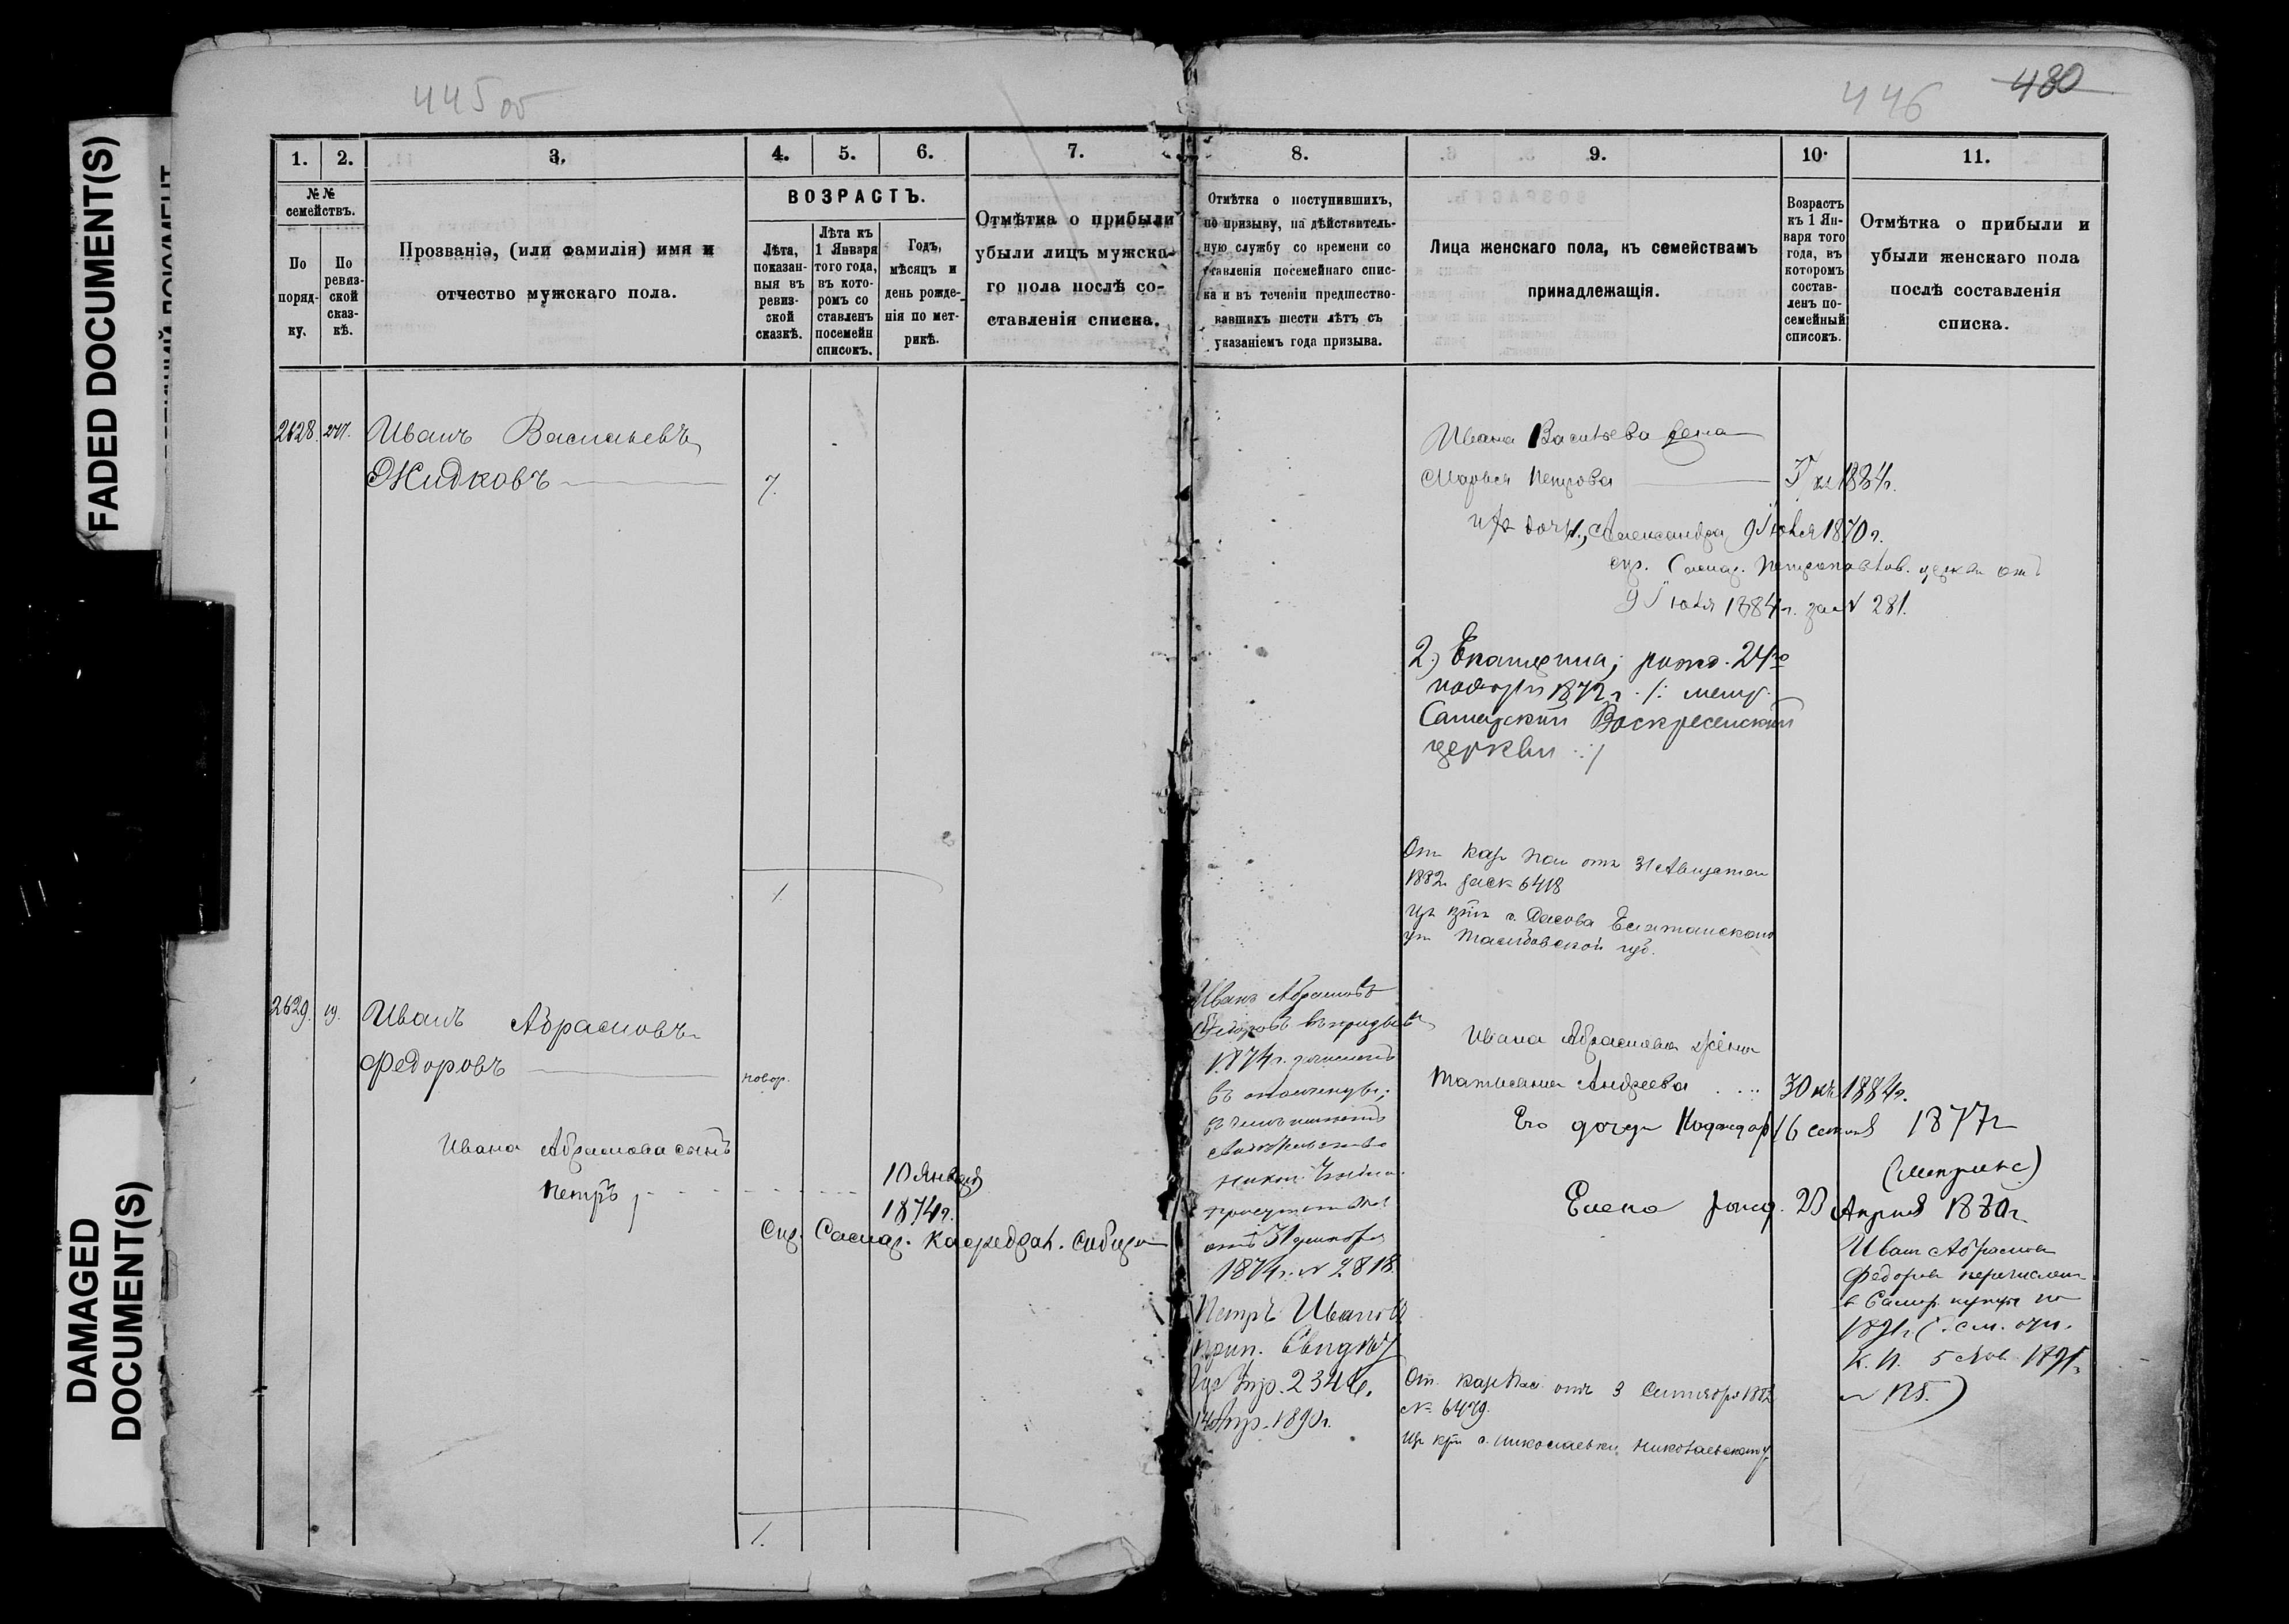 445 об
446 480
FADED DOCUMENT(S)
DAMAGED
DOCUMENT(S)
1.
2.
3.
4.
5.
6.
7.
№ №
семействъ.
По
поряд-
ку.
По
ревиз-
ской
сказ-
кѣ.
Прозваніе, (или фамилія) имя и
отчество мужскаго пола.
ВОЗРАСТЪ.
Лѣта,
показан-
ныя въ
ревиз-
ской
сказкѣ.
Лѣта къ
1 Января
того года,
въ кото-
ромъ со
ставленъ
посемейн
списокъ.
Годъ,
мѣсяцъ и
день рожде-
нія по мет-
рикѣ.
Отмѣтка о прибыли
убыли лицъ мужска-
го пола послѣ со-
ставленія списка.
2628. 277. Иванъ Васильевъ
Жидковъ 7.
1
2629. 19. Иванъ Абрамовъ
Федоровъ новор.
Ивана Абрамова сынъ
Петръ, 10 Января
1874 г.
Спр. Самар. кафедрал. собора
1.
8.
9.
10.
11.
Отмѣтка о поступившихъ,
по призыву, на дѣйствитель-
ную службу со времени со
ставленія посемейнаго спис-
ка и въ теченіи предшество-
вавшихъ шести лѣтъ съ
указаніемъ года призыва.
Лица женскаго пола, къ семействамъ
принадлежащія.
Возрастъ
къ 1 Ян-
варя того
года, въ
которомъ
состав-
ленъ по-
семейный
списокъ.
Отмѣтка о прибыли и
убыли женскаго пола
послѣ составленія
списка.
Ивана Васильева жена
Марья Петрова 1884 г.
ихъ дочь, Александра 9 Іюля 1870 г.
спр. Самар. Петропавлов. церкви отъ
9 Іюля 1884 г. за № 281.
2.) Екатерина, рожд. 24го
ноября 1872 г. /: метр.
Самарской Воскресенской
церкви :/
От Каз Пал отъ 31 Августа
1882 за № 6418
Елатомскаго
Тамбовской губ.
Иванъ Абрамовъ
Федоровъ въ призывъ
1874 г. зачисленъ
въ ополченцы;
свидѣтельство
присутствія
отъ 31 декабря
1874 г. № 2818.
Петръ Ивановъ
прип. Свид.
2346.
1890 г.
Ивана Абрамова жена
Татьяна Андреева 30 къ 1884 г.
Его дочери 1877 г
(метрика)
Елена рожд. Апрѣля 1880 г
Иван Абрамов
Федоров перечислен
в Самар. купцы по
1891 г (см. отн.
К. П. 5 Нов. 1891
№ 125.)
От. Каз Пал. отъ 3 Сентября 1882
№ 6479.
Из кр. с. Николаевки Николаевскаго у.